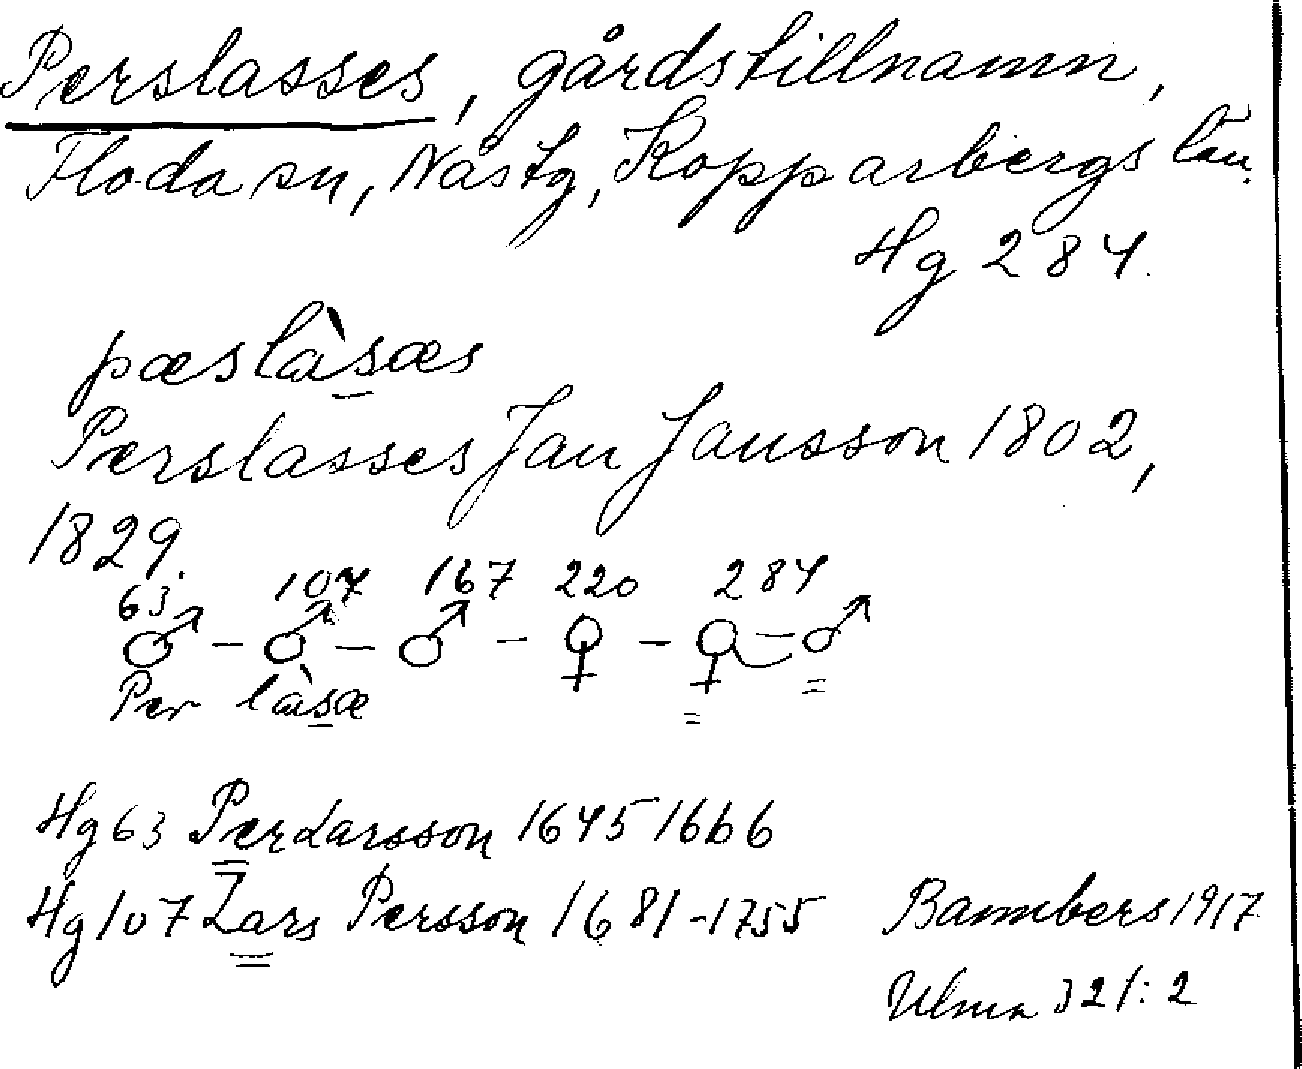 Perslasses, gårdstillnamn,
Floda sn, Nås tg, Kopparbergs län.
Hg 284.
pæslàsæs
Perslasses Jan Jansson 1802,
1829.
63 107 167 220 284
♂ – ♂ – ♂ – ♀ – ♀ = ♂
Per làsæ
Hg 63 Per Larsson 1645 1666
Hg 107 Lars Persson 1681-1755
Bannbers 1917
Ulma 321:2